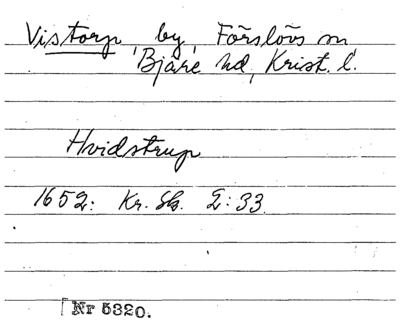 Vistorp, by, Förslövs sn
Bjäre hd, Krist. l.
Hvidstrup
1652: Kr. Sk. 2:33
Nr 5320.